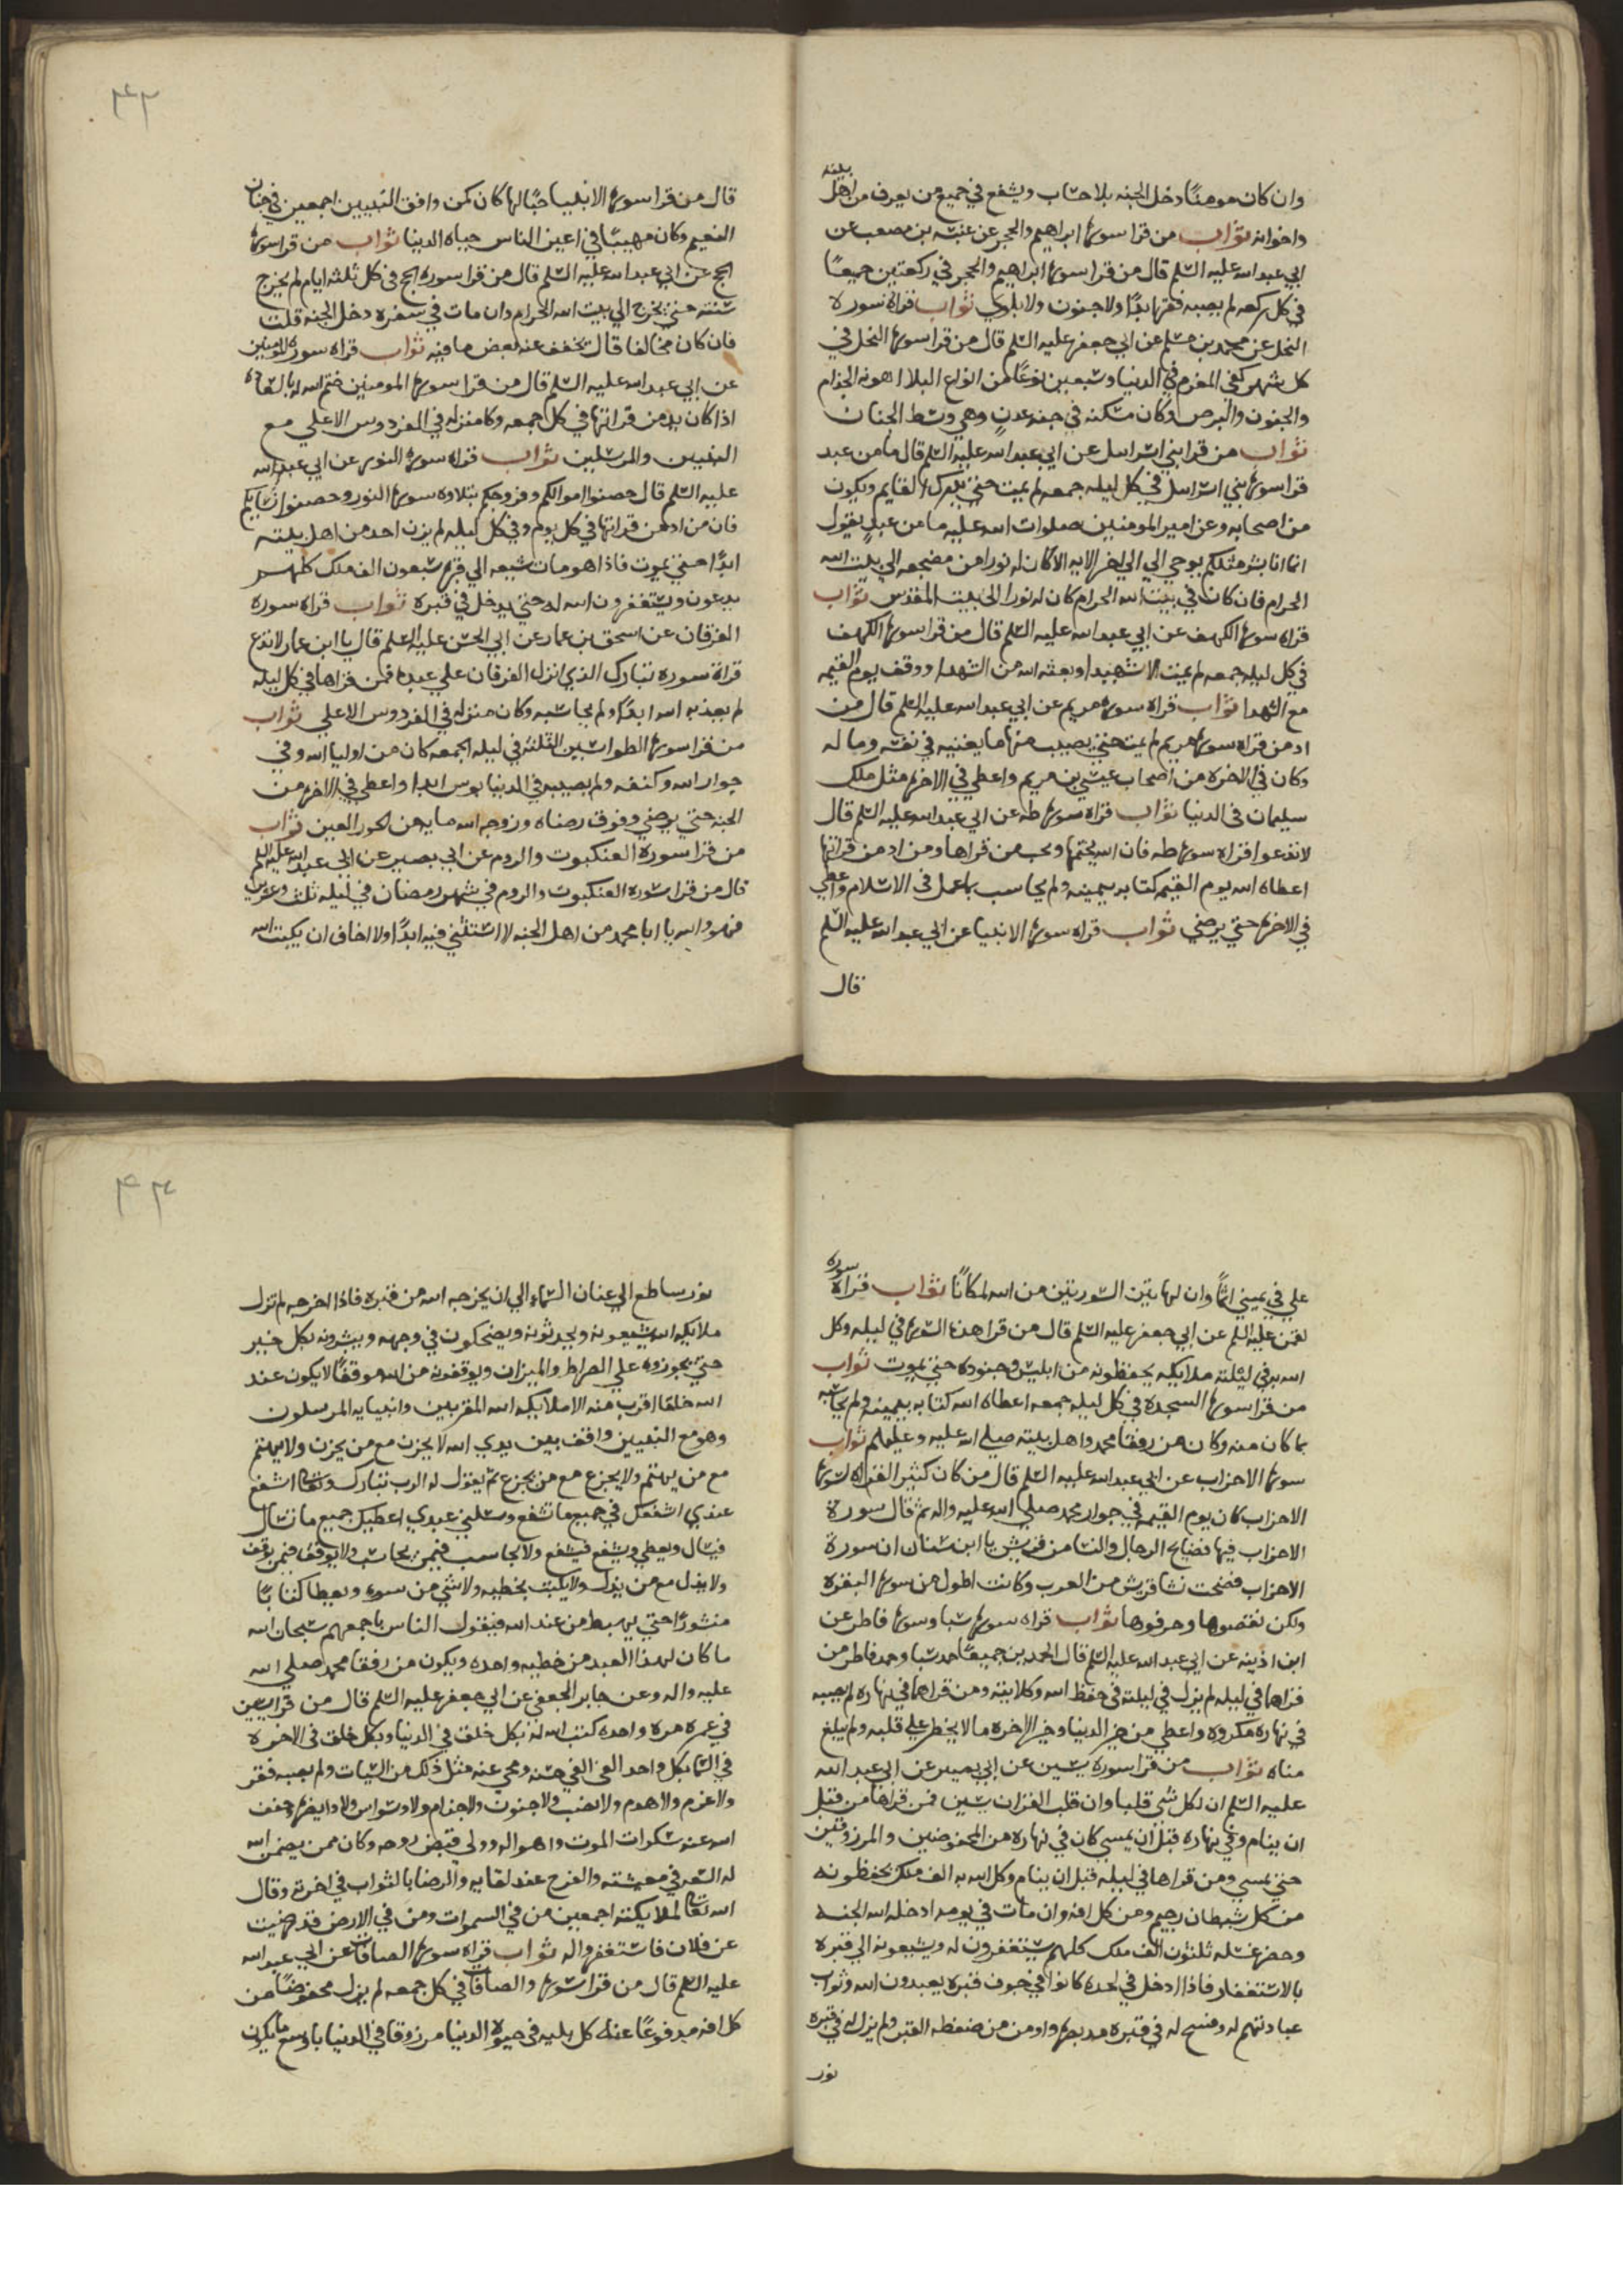 وان كان مومنًا دخل الجنه بلا حساب ويشفع في جميع من يعرف من اهل بيته
واخوانه ثواب من قرا سورة ابراهيم والحجر عن عنبسه بن مصعب عن
ابي عبد الله عليه السلم قال من قرا سورة ابراهيم والحجر في ركعتين جميعًا
في كل ركعه لم يصبه فقر ابدًا ولا جنون ولا بلوي ثواب قراه سورة
النحل عن محمد بن مسلم عن ابي جعفر عليه السلم قال من قرا سورة النحل في
كل شهر كفي المغرم في الدنيا وسبعين نوعًا من انواع البلا اهونه الجذام
والجنون والبرص وكان مسكنه في جنه عدن وهي وسط الجنان
ثواب من قرا بني اسراىل عن ابي عبد الله عليه السلم قال ما من عبد
قرا سورة بني اسراىل في كل ليله جمعه لم يمت حتي يدرك القايم ويكون
من اصحابه وعن امير المومنين صلوات الله عليه ما من عبد يقول
انما انا بشر مثلكم يوحي الي الي اخر الايه الا كان له نورا من مضجعه الي بيت الله
الحرام فان كان في بيت الله الحرام كان له نورا الي بيت المقدس ثواب
قراه سورة الكهف عن ابي عبد الله عليه السلم قال من قرا سورة الكهف
في كل ليله جمعه لم يمت الا شهيدا وبعثه الله من الشهدا ووقف يوم القيمه
مع الشهدا ثواب قراه سورة مريم عن ابي عبد الله عليه السلم قال من
ادمن قراه سورة مريم لم يمت حتي يصيب منها ما يغنيه في نفسه وماله
وكان في الاخره من اصحاب عيسي بن مريم واعطي في الاخرة مثل ملك
سليمان في الدنيا ثواب قراه سورة طه عن ابي عبد الله عليه السلم قال
لا تدعوا قراه سورة طه فان الله يحبها ويحب من قراها ومن ادمن قراتها
اعطاه الله يوم القيمه كتابه بيمينه ولم يحاسب بما عمل في الاسلام واعطي
في الاخرة حتي يرضي ثواب قراه سورة الانبيا عن ابي عبد الله عليه السلم
قال
٤٣
قال من قرا سورة الانبيا حبًا لها كان كمن وافق النبيين اجمعين في جنات
النعيم وكان مهيبًا في اعين الناس حياه الدنيا ثواب من قرا سورة
الحج عن ابي عبد الله عليه السلم قال من قرا سورة الحج في كل ثلثه ايام لم يخرج
سنته حتي يخرج الي بيت الله الحرام وان مات في سفره دخل الجنه قلت
فان كان مخالفا قال يخفف عنه بعض ما فيه ثواب قراه سورة المومنين
عن ابي عبد الله عليه السلم قال من قرا سورة المومنين ختم الله له بالسعاده
اذا كان يدمن قراتها في كل جمعه وكا منزله في الفردوس الاعلي مع
النبيين والمرسلين ثواب قراه سورة النور عن ابي عبد الله
عليه السلم قال حصنوا اموالكم وفروجكم بتلاوه سورة النور وحصنوا نسايكم
فان من ادمن قراتها في كل يوم وفي كل ليله لم يزن احد من اهل بيته
ابدًا حتي يموت فاذا هو مات شيعه الي قبره سبعون الف ملك كلهم
يدعون ويستغفرون الله له حتي يدخل في قبره ثواب قراه سورة
الفرقان عن اسحق بن عمار عن ابي الحسن عليه السلم قال يا ابن عمار لا تدع
قراة سورة تبارك الذي انزل الفرقان علي عبده فمن قراها في كل ليله
لم يعذبه الله ابدًا ولم يحاسبه وكان منزله في الفردوس الاعلي ثواب
من قرا سورة الطواسين الثلثه في ليله الجمعه كان من اوليا الله وفي
جوار الله وكنفه ولم يصيبه في الدنيا بوس ابدا واعطي في الاخرة من
الجنه حتي يرضي وفوق رضاه وزوجه الله مايه من الحور العين ثواب
من قرا سورة العنكبوت والروم عن ابي بصير عن ابي عبد الله عليه السلم
قال من قرا سورة العنكبوت والروم في شهر رمضان في ليله ثلث وعشرين
فهو والله يا ابا محمد من اهل الجنه لا استثني فيه ابدًا ولا اخاف ان يكتب الله
علي في يميني اثمًا وان لهاتين السورتين من الله لمكانًا ثواب قراه سورة
لقمن عليه السلم عن ابي جعفر عليه السلم قال من قرا هذه السورة في ليله وكل
الله به في ليلته ملايكه يحفظونه من ابليس وجنوده حتي يموت ثواب
من قرا سورة السجده في كل ليله جمعه اعطاه الله كتابه بيمينه ولم يحاسبه
بما كان منه وكان من رفقا محمد واهل بيته صلي الله عليه وعليهم ثواب
سورة الاحزاب عن ابي عبد الله عليه السلم قال من كان كثير القراه لسورة
الاحزاب كان يوم القيمه في جوار محمد صلي الله عليه واله ثم قال سورة
الاحزاب فيها فضايح الرجال والنسا من قريش يا ابن سنان ان سورة
الاحزاب فضحت نسا قريش من العرب وكانت اطول من سورة البقره
ولكن نقصوها وحرفوها ثواب قراه سورة سبا وسورة فاطر عن
ابن اذينه عن ابي عبد الله عليه السلم قال الحمدين جميعًا حمد سبا وحمد فاطر من
قراهما في ليله لم يزل في ليلته في حفظ الله وكلايته ومن قراهما في نهاره لم يصبه
في نهاره مكروه واعطي من خير الدنيا وخير الاخره ما لا يخطر علي قلبه ولم يبلغ
مناه ثواب من قرا سورة يسين عن ابي بصير عن ابي عبد الله
عليه السلم ان لكل شي قلبا وان قلب القران يسين فمن قراها من قبل
ان ينام وفي نهاره قبل ان يمسي كان في نهاره من المحفوضين والمرزوقين
حتي يمسي ومن قراها في ليله قبل ان ينام وكل الله به الف ملك يحفظونه
من كل شيطان رجيم ومن كل افه وان مات في يومه ادخله الله الجنه
وحضر غسله ثلثون الف ملك كلهم يستغفرون له ويشيعونه الي قبره
بالاستغفار فاذا ادخل في لحده كانوا في جوف قبره يعبدون الله وثواب
عبادتهم له وفسح له في قبره مد بصره واومن من ضغطه القبر ولم يزل له في قبره
نور
٤٤
نور ساطع الي عنان السماء الي ان يخرجه الله من قبره فاذا اخرجه لم تزل
ملايكه الله يشيعونه ويحدثونه ويضحكون في وجهه ويبشرونه بكل خير
حتي يجوزوه علي الصراط والميزان ويوقفونه من الله موقفًا لا يكون عند
الله خلقا اقرب منه الا ملايكه الله المقربين وانبيايه المرسلون
وهو مع النبيين واقف بين يدي الله لا يحزن مع من يحزن ولا يهتم
مع من يهتم ولا يجزع مع من يجزع ثم يقول له الرب تبارك وتعالى اشفع
عبدي اشفعك في جميع ما تشفع وسلني عبدي اعطيك جميع ما تسال
فيسال ويعطي ويشفع فيشفع ولا يحاسب فيمن يحاسب ولا يوقف فيمن يوقف
ولا يذل مع من يذل ولا يكبت بخطيه ولا شي من سوء ويعطا كتابًا
منشورًا حتي يهبط من عند الله فيقول الناس باجمعهم سبحان الله
ما كان لهذا العبد من خطيه واحده ويكون من رفقا محمد صلي الله
عليه واله وعن جابر الجعفي عن ابي جعفر عليه السلم قال من قرا يسين
في عمره مرة واحده كتب الله له بكل خلق في الدنيا وبكل خلق في الاخره
في السما بكل واحد الفي الفي حسنه ومحي عنه مثل ذلك من السيات ولم يصبه فقر
ولا غرم ولا هدم ولا نصب ولا جنون ولا جذام ولا وسواس ولا دا يضره وخفف
الله عنه سكرات الموت واهواله وولي قبض روحه وكان ممن يضمن الله
له السعه في معيشته والفرح عند لقايه والرضا بالثواب في اخرته وقال
الله تعالى لملايكته اجمعين من في السموات ومن في الارض قد رضيت
عن فلان فاستغفروا له ثواب قراه سورة الصافات عن ابي عبد الله
عليه السلم قال من قرا سورة والصافات في كل جمعه لم يزل محفوضًا من
كل افه مدفوعًا عنه كل بليه في حيوه الدنيا مرزوقا في الدنيا باوسع ما يكون